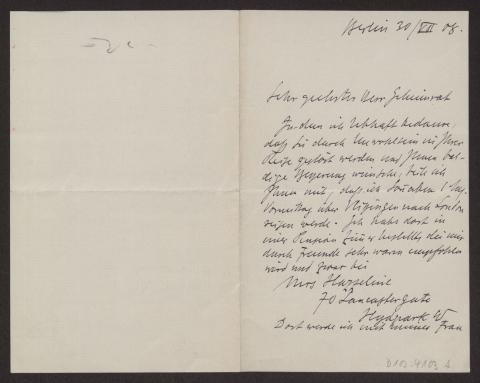 Berlin 30/VII 08.
Sehr geehrter Herr Geheimrat
Indem ich lebhaft bedaure,
daß Sie durch Unwohlsein in Ihrer
Reise gestört werden und Ihnen bal-
dige Besserung wünsche, teile ich
Ihnen mit, daß ich Sonnabend 1 Aug.
Vormittag über Vlissingen nach London
reisen werde. Ich habe dort in
einer Pension Zimmer bestellt, die mir
durch Freunde sehr warm empfohlen
wird und zwar bei
Mrs Hazseline
70 Lancastergate
Hydepark W
Dort werde ich mit meiner Frau